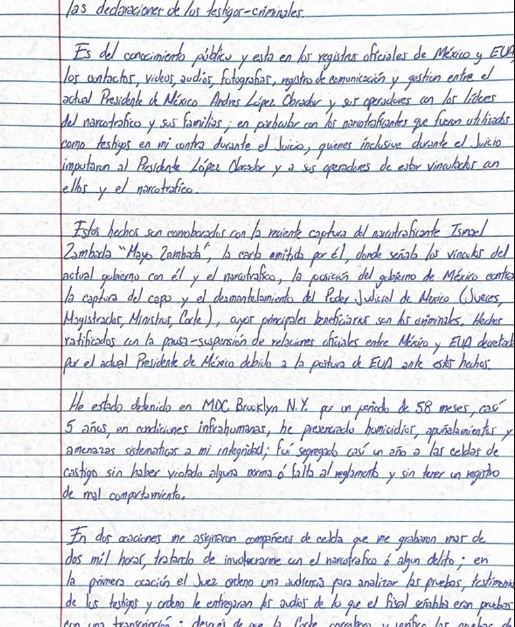 las declaraciones de los testigos-criminales.
Es del conocimiento público y esta en los registros oficiales de México y EUA
los contactos, videos, audios, fotografias, registro de comunicación y gestion entre el
actual Presidente de México Andres López Obrador y sus operadores con los líderes
del narcotrafico y sus familias; en particular con los narcotraficantes que fueron utilizados
como testigos en mi contra durante el Juicio, quienes inclusive durante el Juicio
imputaron al Presidente López Obrador y a sus operadores de estar vinculados con
ellos y el narcotrafico.
Estos hechos son corroborados con la reciente captura del narcotraficante Ismael
Zambada "Mayo Zambada", la carta emitida por él, donde señala los vinculos del
actual gobierno con él y el narcotrafico, la posición del gobierno de México contra
la captura del capo y el desmantelamiento del Poder Judicial de México (Jueces,
Magistrados, Ministros, Corte), cuyos principales beneficiarios son los criminales. Hechos
ratificados con la pausa-suspensión de relaciones oficiales entre México y EUA decretada
por el actual Presidente de México debido a la postura de EUA ante estos hechos.
He estado detenido en MDC Brooklyn N.Y. por un periodo de 58 meses, casí
5 años, en condiciones infrahumanas, he presenciado homicidios, apuñalamientos y
amenazas sistematicas a mi integridad; fuí segregado casí un año a las celdas de
castigo sin haber violado alguna norma ó falta al reglamento y sin tener un registro
de mal comportamiento.
En dos ocaciones me asignaron compañeros de celda que me grabaron mas de
dos mil horas, tratando de involucrarme con el narcotrafico ó algun delito; en
la primera ocación el Juez ordeno una audiencia para analizar las pruebas, testimonios
de los testigos y ordeno le entregaran los audios de lo que el fiscal señalaba eran pruebas
con una transcripción; después de que la Corte